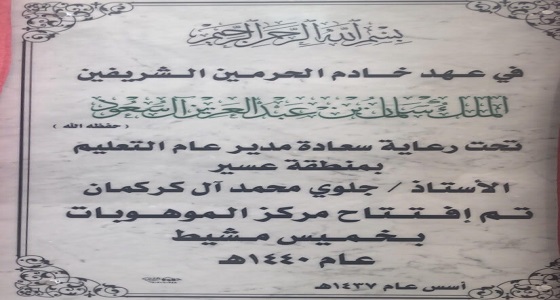 بسم الله الرحمن الرحيم
في عهد خادم الحرمين الشريفين
الملك سلمان بن عبدالعزيز آل سعود
( حفظه الله )
تحت رعاية سعادة مدير عام التعليم
بمنطقة عسير
الأستاذ / جلوي محمد آل كركمان
تم إفتتاح مركز الموهوبات
بخميس مشيط
عام ١٤٤٠هـ
أسس عام ١٤٣٧هـ